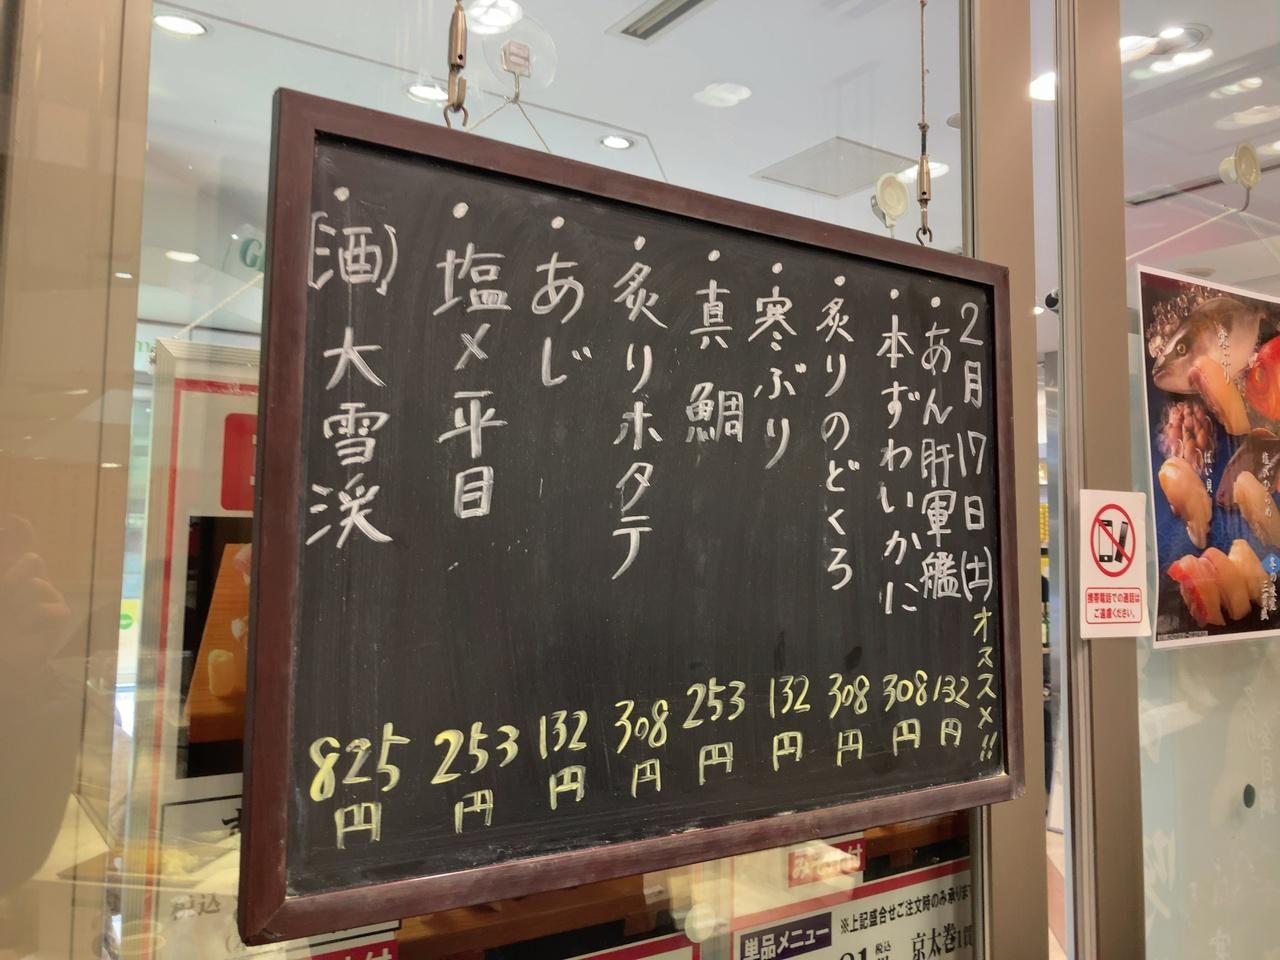 2月17日(土)オススメ!!
・あん肝軍艦 132円
・本ずわいかに 308円
・炙りのどくろ 308円
・寒ぶり 132円
・真鯛 253円
・炙りホタテ 308円
・あじ 132円
・塩〆平目 253円
・(酒)大雪渓 825円
携帯電話での通話は
ご遠慮ください。
寒ぶり
ばい貝
みそ汁付
※上記盛合せご注文時のみ承りま
単品メニュー
税込
京太巻1貫
税込